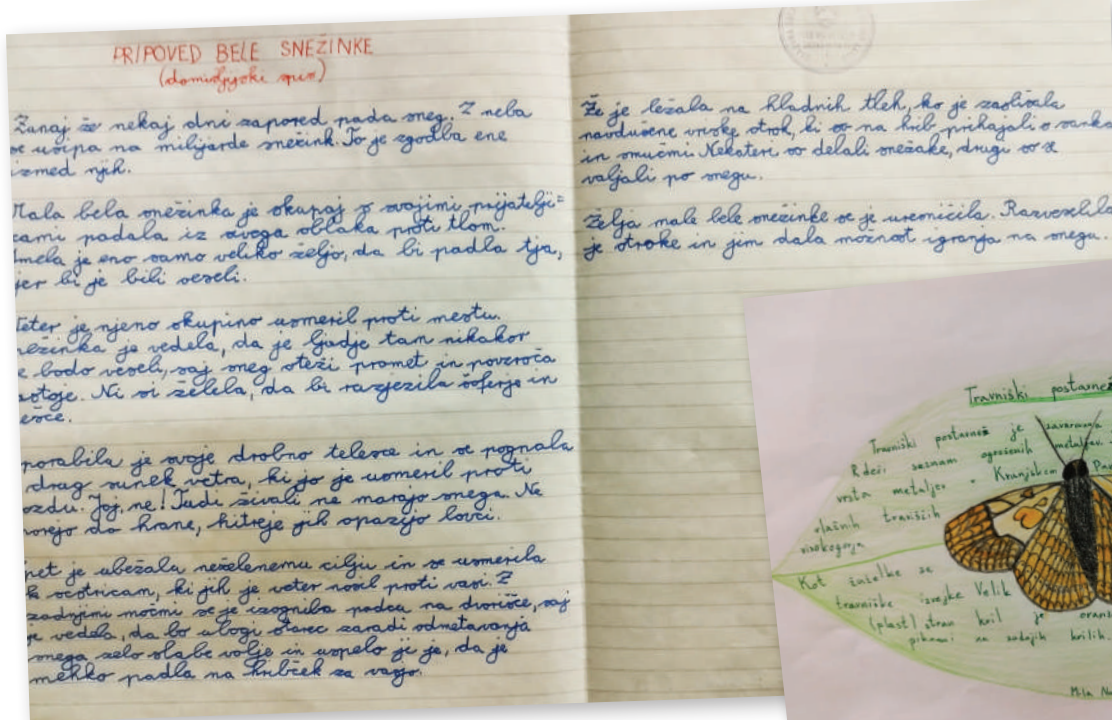 PRIPOVED BELE SNEŽINKE
(domišljijski spis)
Zunaj že nekaj dni zapored pada sneg. Z neba
se usipa na milijarde snežink. To je zgodba ene
izmed njih.
Mala bela snežinka je skupaj s svojimi prijatelji=
cami padala iz svega oblaka proti tlom.
Imela je eno samo veliko željo, da bi padla tja,
jer bi je bili veseli.
Veter je njeno skupino usmeril proti mestu.
nežinka je vedela, da je ljudje tam nikakor
e bodo veseli, saj sneg oteži promet in povzroča
astoje. Ni si želela, da bi razjezila šoferje in
ešce.
porabila je svoje drobno telesce in se pognala
drug sunek vetra, ki jo je usmeril proti
ozdu. Joj, ne! Tudi živali ne marajo snega. Ne
morejo do hrane, hitreje jih opazijo lovci.
pet je ubežala neželenemu cilju in se usmerila
k sestricam, ki jih je veter nosil proti vasi. Z
zadnjimi močmi se je izognila padcu na dvorišče, saj
je vedela, da bo ubogi starec zaradi odmetavanja
snega zelo slabe volje in uspelo ji je, da je
mehko padla na hribček za vasjo.
Že je ležala na hladnih tleh, ko je zaslišala
navdušene vriske otrok, ki so na hrib prihajali s sanka
in smučmi. Nekateri so delali snežake, drugi so se
valjali po snegu.
Želja male bele snežinke se je uresničila. Razveselila
je otroke in jim dala možnost igranja na snegu.
Travniški postavnež
Travniški postavnež je zavarovana
Rdeči seznam ogroženih metuljev.
vrsta metuljev. Kranjskem
vlažnih traviščih
visokogorja
Kot žuželke se
travniške Velik
(plast) stran kril je oranž
pikami na zadnjih krilih.
Mila